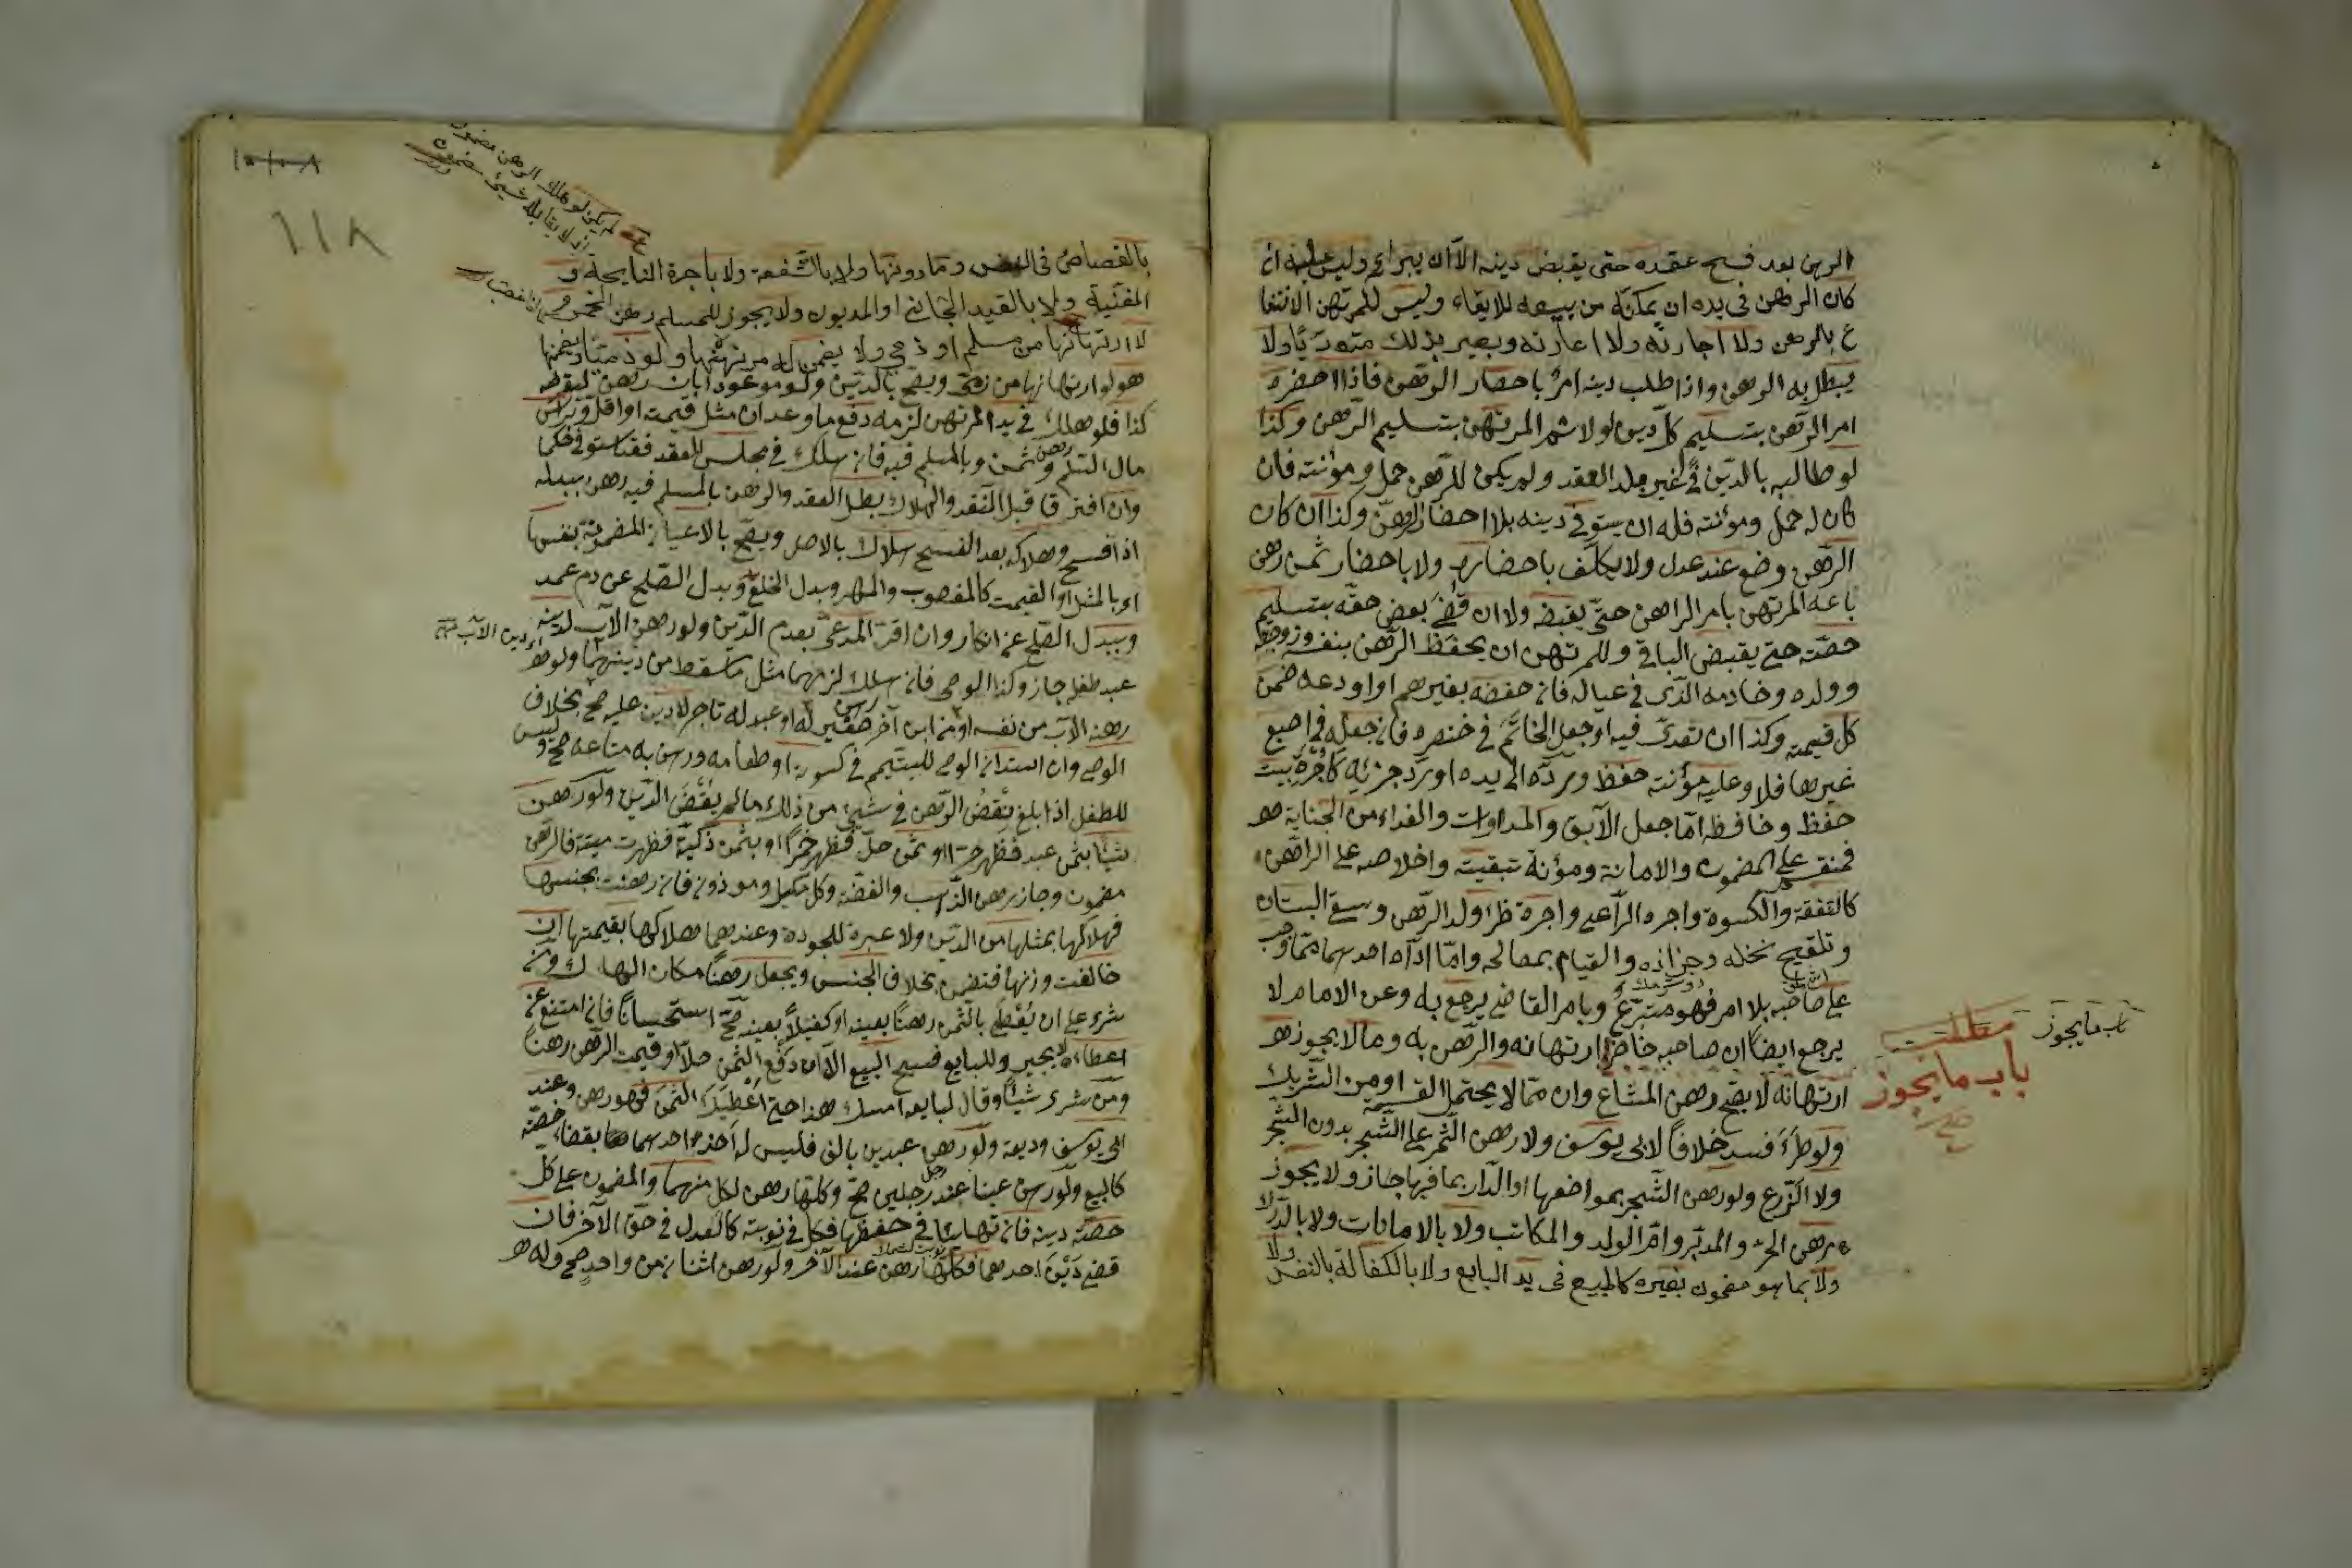 الرهن بعد فسخ عقده حتى يقبض دينه الا ان يبرئه وليس عليه ان
كان الرهن في يده ان يمكنه من بيعه للايفاء وليس للمرتهن الانتفا
ع بالرهن ولا اجارته ولا اعارته ويصير بذلك متعديا ولا
يبطل به الرهن واذا طلب دينه امر باحضار الرهن فاذا احضره
امر الرهن بتسليم كل دين اولا ثم المرتهن بتسليم الرهن وكذا
لو طالبه بالدين في غير بلد العقد ولم يكن للرهن حمل ومؤنته فان
كان له حمل ومؤنته فله ان يستوفي دينه بلا احضار الرهن وكذا ان كان
الرهن وضع عند عدل ولا يكلف باحضاره ولا باحضار ثمن رهن
باعه المرتهن بامر الراهن حتى يقبضه ولا ان قضى بعض حقه بتسليم
حصته حتى يقبض الباقي وللمرتهن ان يحفظ الرهن بنفسه وزوجته
وولده وخادمه الذى في عياله فان حفضه بغيرهم او اودعه ضمن
كل قيمته وكذا ان تعدى فيه او جعل الخاتم في خنصره فان جعله في اصبع
غيرها فلا وعليه مؤنته حفظ ورده الى يده او رد جزئه كاجرة بيت
حفظ وحافظه اما جعل الآبق والمداوات والفداء من الجناية
فمنقسم على المضمون والامانة ومؤنة تبقيته واخلاصه على الراهن
كالنفقة والكسوة واجره الراعي واجرة ظئر ولد الرهن وسقي البستان
وتلقيح نخله وجزازه والقيام بمصالحه واما اداه احدهما مما وجب
على صاحبه بلا امر فهو متبرع وبامر القاضي يرجع به وعن الامام لا
يرجع ايضا ان صاحبه حاضرا ارتهانه والرهن به وما لا يجوز
مطلب
باب ما يجوز
باب ما يجوز
ارتهانه لا يصح رهن المشاع وان مما لا يحتمل القسمة او من الشريك
ولو طرء فسد خلافا لابي يوسف ولا رهن الثمر على الشجر بدون الشجر
ولا الزرع ولو رهن الشجر بمواضعها او الدار بما فيها جاز ولا يجوز
رهن الحر والمدبر وام الولد والمكاتب ولا بالامانات ولا بالدرك
ولا بما هو مضمون بغيره كالمبيع في يد البايع ولا بالكفالة بالنفس ولا
١١٨
لم يكن لو هلك الرهن مضمون
لانه لا يقابله شيئ مضمون
بالقصاص في النفس وما دونها ولا بالشفعة ولا باجرة النايحة و
المغنية ولا بالعبد الجاني او المديون ولا يجوز للمسلم رهن الخمر
لا ارتهانها من مسلم او ذمي ولا يضمن له مرتهنها ولو ذميا ويضمنها
هو لو ارتهنها من ذمي ويصح بالدين ولو موعودا بان رهن ليقرضه
كذا فلو هلك في يد المرتهن لزمه دفع ما وعد ان مثل قيمته او اقل وبرأس
مال السلم وثمن وبالمسلم فيه فان هلك في مجلس العقد فقد استوفى حكما
وان افترقا قبل النقد والهلاك بطل العقد والرهن بالمسلم فيه رهن ببدله
اذا فسخ وهلاكه بعد الفسخ هلاك بالاصل ويصح بالاعيان المضمونة بنفسها
اى بالمثل او القيمت كالمغصوب والمهر وبدل الخلع وبدل الصلح عن دم عمد
وببدل الصلح عن انكار وان اقر المدعي بعدم الدين ولو رهن الاب لدينه
عبد طفله جاز وكذا الوصي فان هلك لزمهما مثل ما سقط من دينهما ولو
رهنه الاب من نفسه او من ابن آخر صغير له او عبد له تاجر لا دين عليه صح بخلاف
الوصي وان استدان الوصي لليتيم في كسوته او طعامه ورهن به متاعه صح وليس
للطفل اذا بلغ نقض الرهن في شيئ من ذلك ما لم يقض الدين ولو رهن
شيئا بثمن عبد فظهر حرا او بثمن خل فظهر خمرا او بثمن ذكية فظهرت ميتة فالرهن
مضمون وجاز رهن الذهب والفضة وكل مكيل وموزون فان رهنت بجنسها
فهلاكها بمثلها من الدين ولا عبرة للجودة وعندهما هلاكها بقيمتها ان
خالفت وزنها فتضمن بخلاف الجنس ويجعل رهنا مكان الهالك ومن
شرى على ان يعطى بالثمن رهنا بعينه او كفيلا بعينه صح استحسانا فان امتنع عن
اعطاءه لا يجبر وللبايع فسخ البيع الا ان دفع الثمن حالا او قيمت الرهن رهنا
ومن شرى شيئا وقال لبايعه امسك هذا حتى اعطيك الثمن فهو رهن وعند
ابي يوسف وديعة ولو رهن عبدين بالف فليس له اخذ احدهما بقضاء حصته
كالبيع ولو رهن عينا عند رجلين صح وكلها رهن لكل منهما والمضمون على كل
حصته دينه فان تهايئا في حفظها فكل في نوبته كالعدل في حق الآخر فان
قضى دين احدهما فكلها رهن عند الآخر ولو رهن اثنان من واحد صح وله